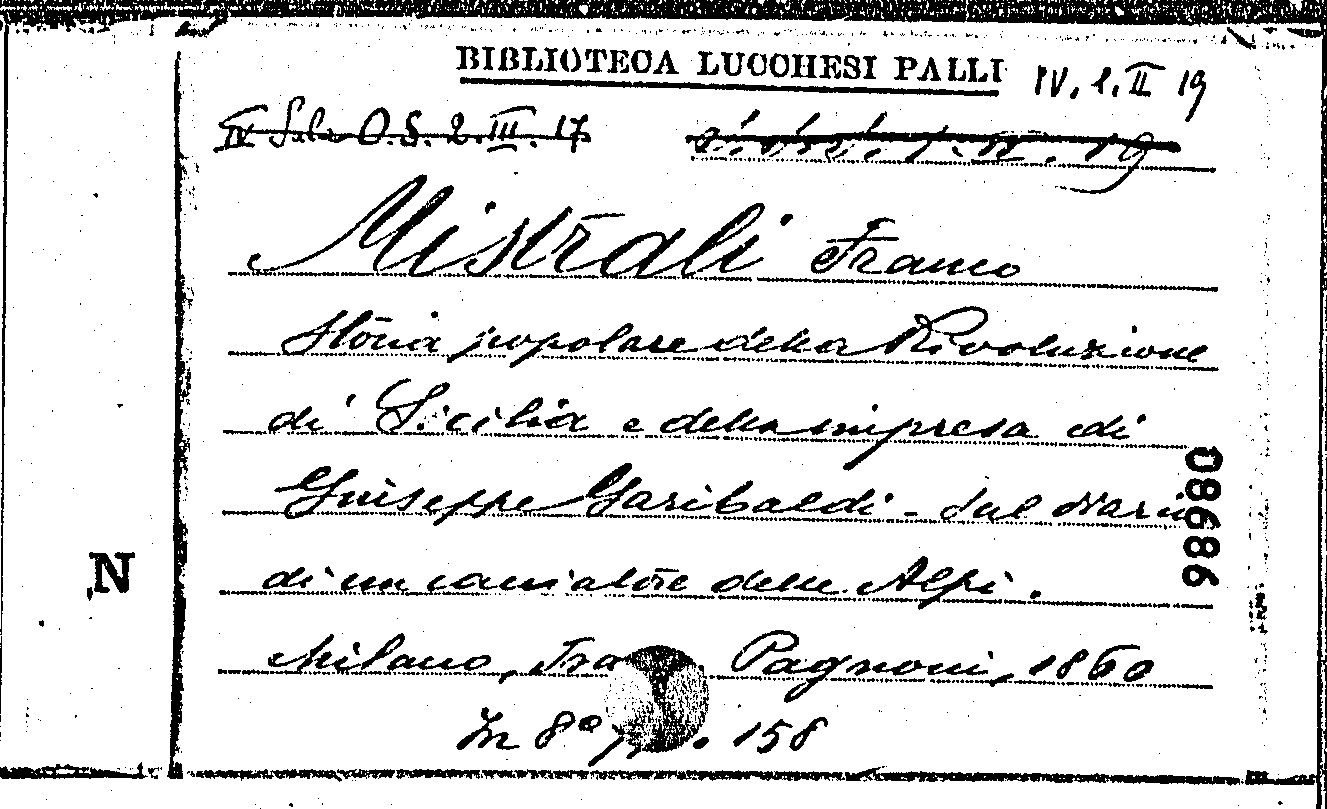 BIBLIOTECA LUCCHESI PALLI IV. 1. II 19
IV Sala O.S. 2. III. 17
Mistrali Franco
Storia popolare della Rivoluzione
di Sicilia e della impresa di
Giuseppe Garibaldi - Sul diario
di un cacciatore delle Alpi.
Milano, Pagnoni, 1860
In 8° pp. 158
08986
N